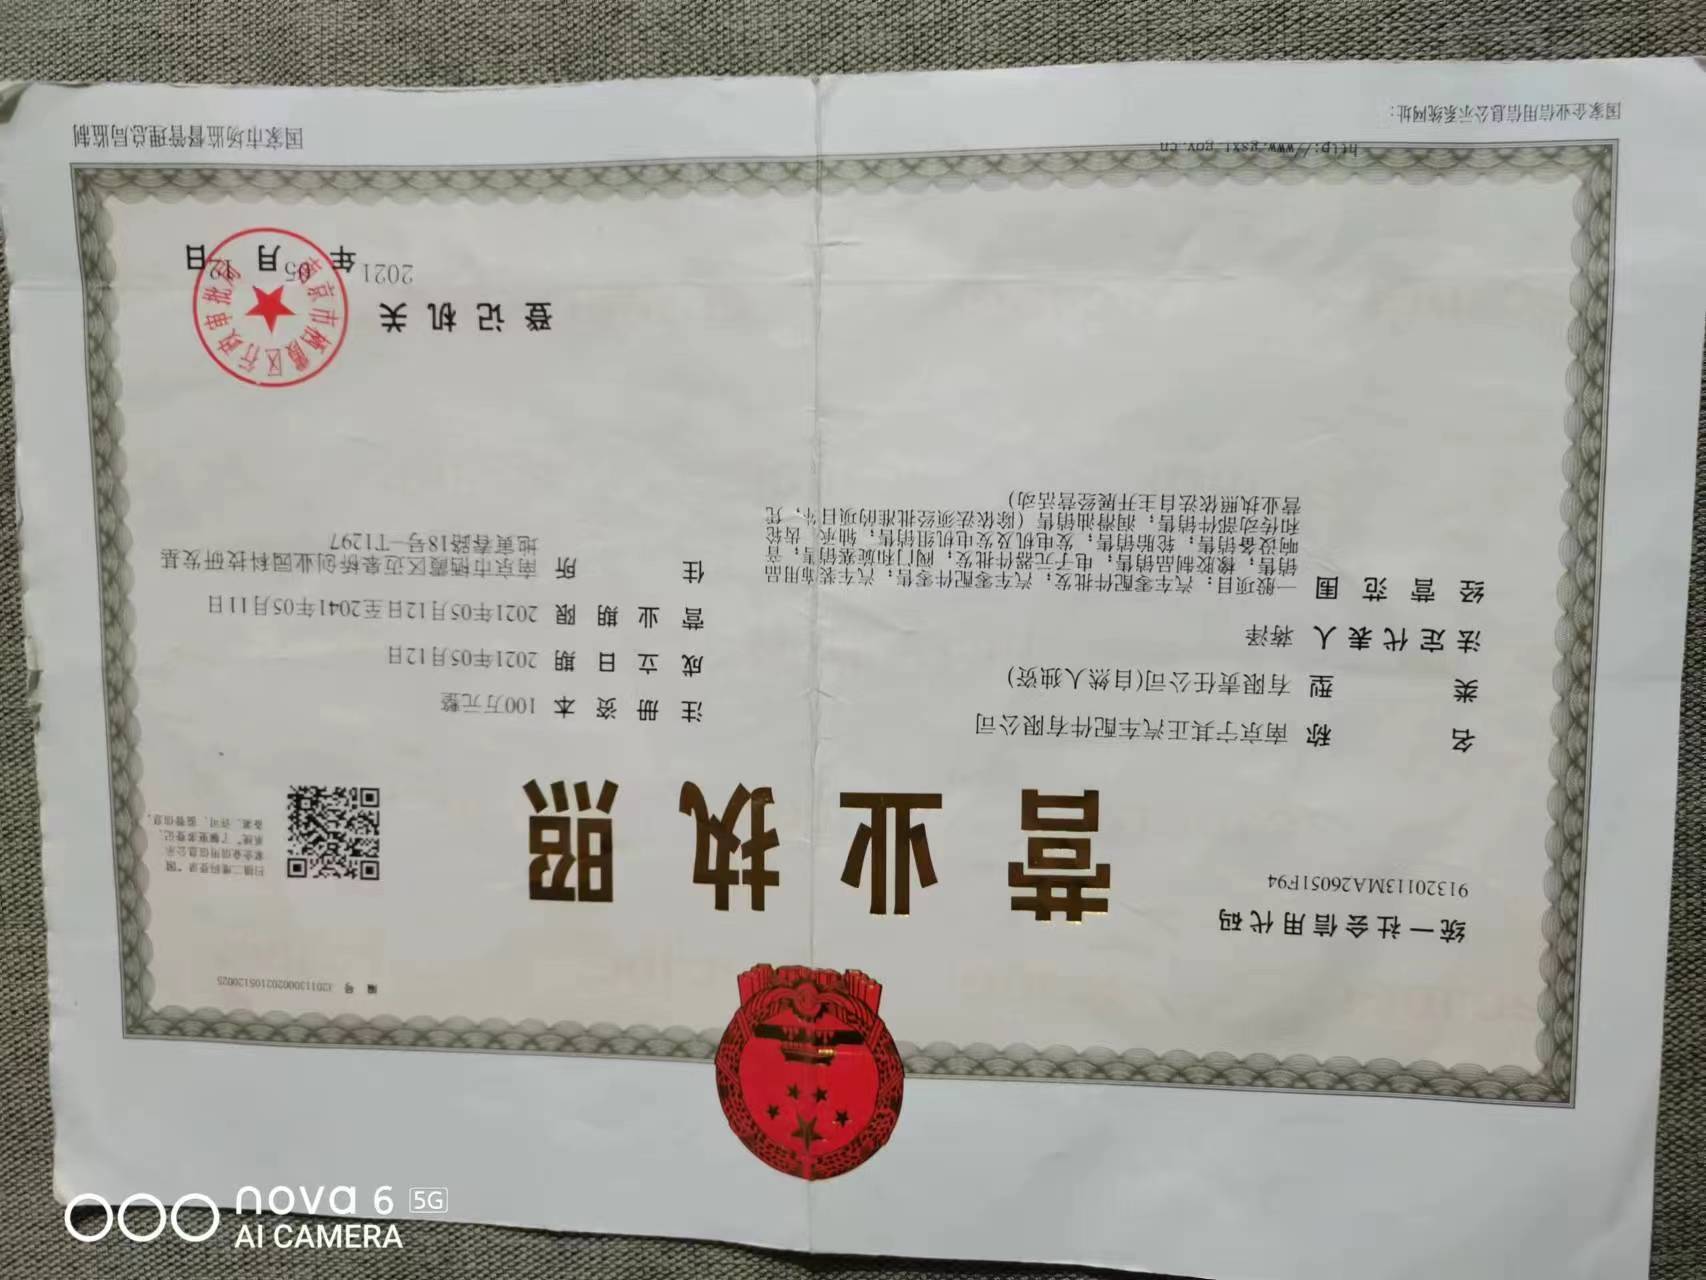 编 号 320113000202105120025
统一社会信用代码
91320113MA26051F94
营业执照
扫描二维码登录“国
家企业信用信息公示
系统”了解更多登记、
备案、许可、监管信息。
名 称 南京宁其正汽车配件有限公司
类 型 有限责任公司(自然人独资)
法定代表人 蒋泽
经营范围 一般项目：汽车零配件批发；汽车零配件零售；汽车装饰用品
销售；橡胶制品销售；电子元器件批发；阀门和旋塞销售；音
响设备销售；轮胎销售；发电机及发电机组销售；轴承、齿轮
和传动部件销售；润滑油销售（除依法须经批准的项目外，凭
营业执照依法自主开展经营活动）
注册资本 100万元整
成立日期 2021年05月12日
营业期限 2021年05月12日至2041年05月11日
住 所 南京市栖霞区迈皋桥创业园科技研发基
地寅春路18号—T1297
登记机关
2021 年 05 月 12 日
南京市栖霞区行政审批局
http://www.gsxt.gov.cn
国家企业信用信息公示系统网址：
国家市场监督管理总局监制
nova 6 5G
AI CAMERA